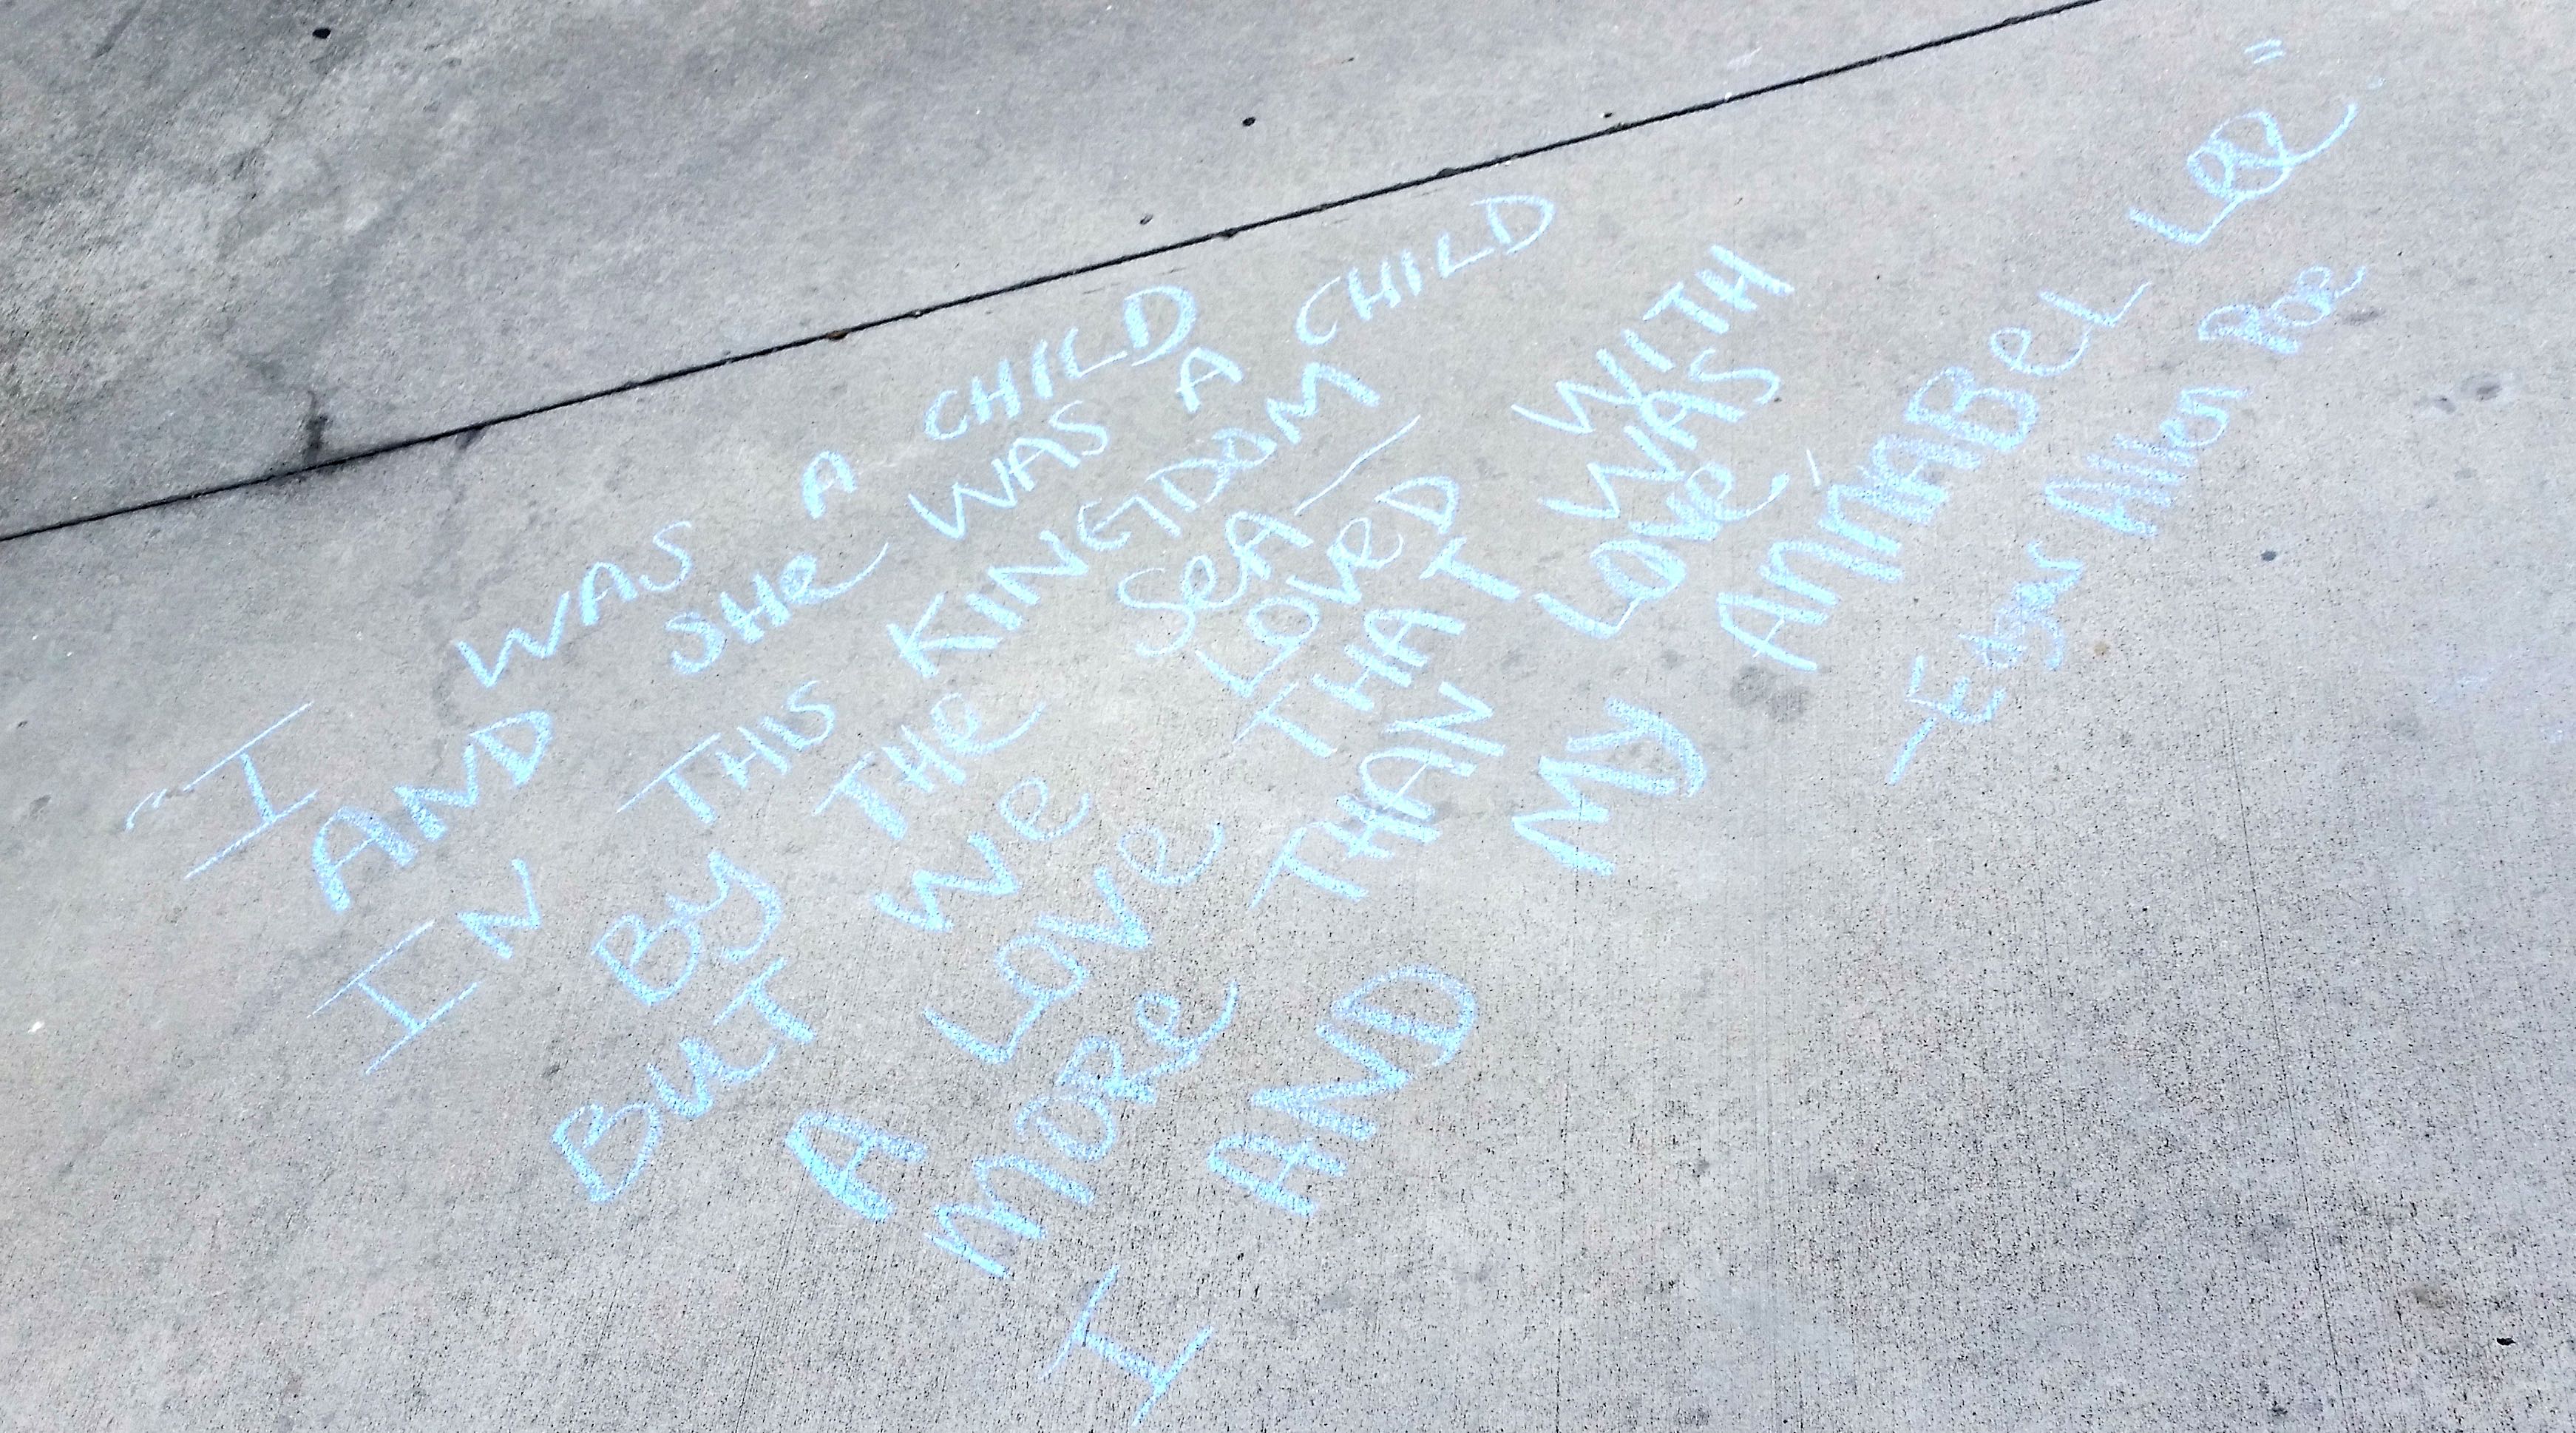 "I WAS A CHILD
AND SHe WAS A CHILD
IN THIS KINGDOM
By THe SeA—
BuT We LOVeD WITH
A LOVe THAT WAS
MORe THAN LOVe,
I AND My ANNABeL Lee."
-Edgar Allen Poe